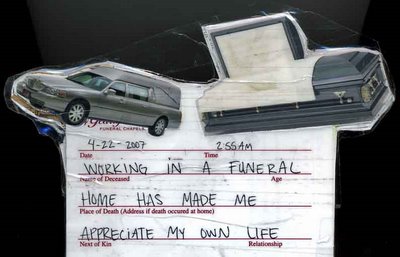 FUNERAL CHAPELS
4-22-2007 2:55AM
Date Time
WORKING IN A FUNERAL
Name of Deceased Age
HOME HAS MADE ME
Place of Death (Address if death occured at home)
APPRECIATE MY OWN LIFE
Next of Kin Relationship